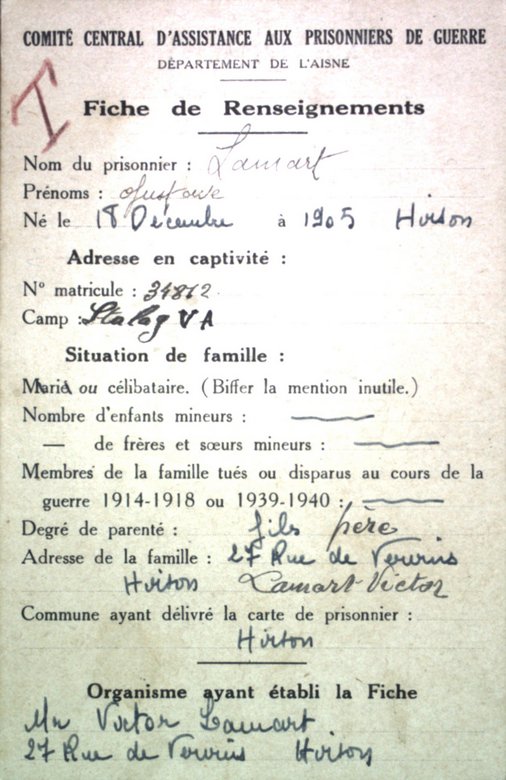 COMITÉ CENTRAL D'ASSISTANCE AUX PRISONNIERS DE GUERRE
DÉPARTEMENT DE L'AISNE
T
Fiche de Renseignements
Nom du prisonnier : Lamart
Prénoms : Gustave
Né le 18 Décembre à 1905 Hirson
Adresse en captivité :
N° matricule : 34812
Camp : Stalag V A
Situation de famille :
Marié ou célibataire. (Biffer la mention inutile.)
Nombre d'enfants mineurs :
— de frères et sœurs mineurs :
Membres de la famille tués ou disparus au cours de la
guerre 1914-1918 ou 1939-1940 :
Degré de parenté : fils père
Adresse de la famille : 27 Rue de Vervins
Hirson Lamart Victor
Commune ayant délivré la carte de prisonnier :
Hirson
Organisme ayant établi la Fiche
Mr Victor Lamart
27 Rue de Vervins Hirson